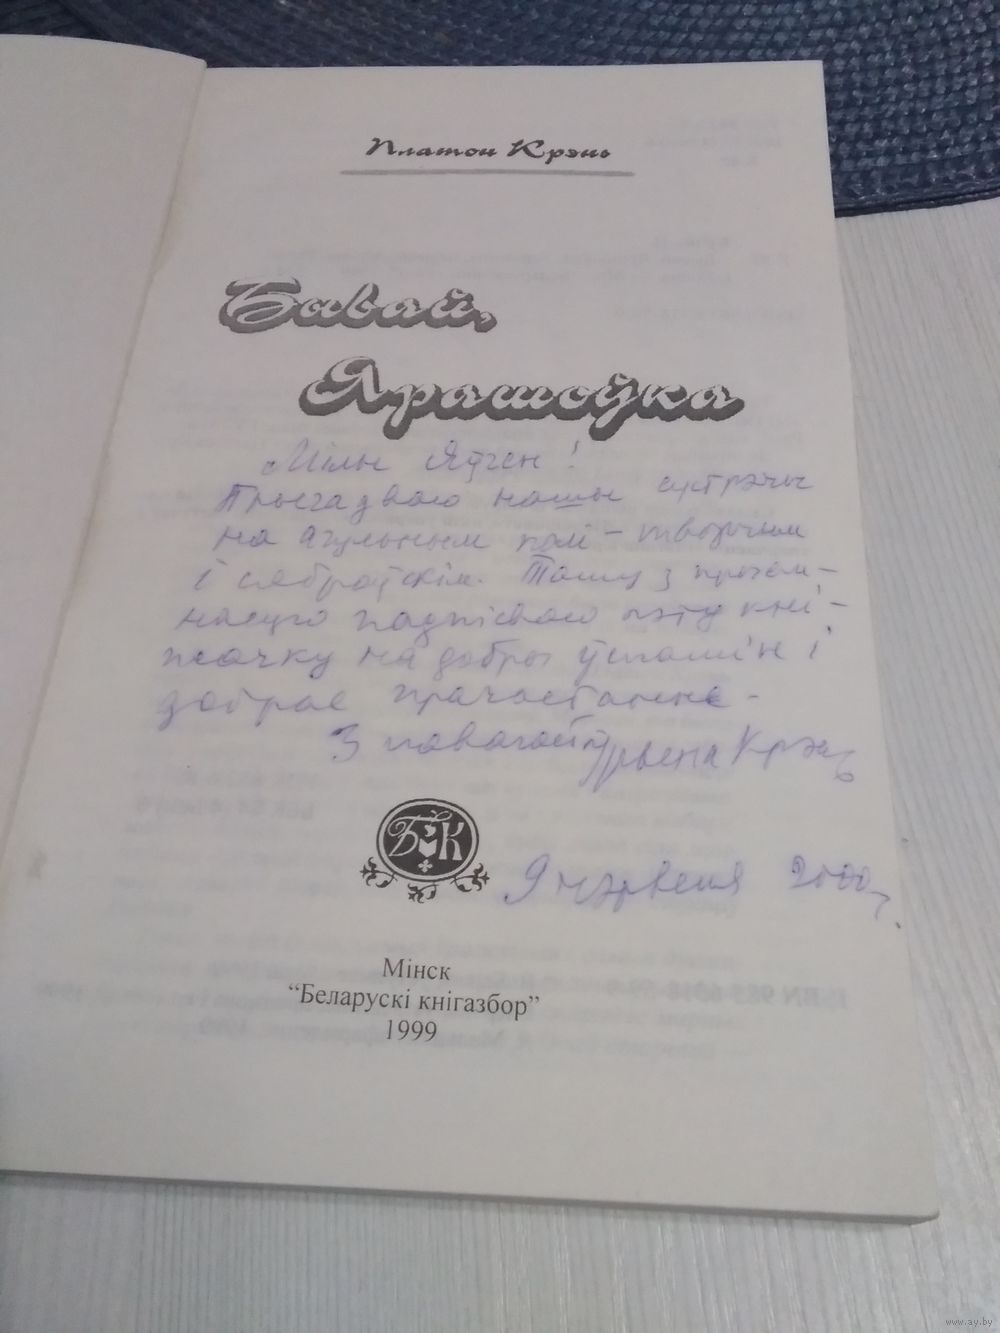 Платон Крэнь
Бывай,
Ярашоўка
Мілы Яўген!
Прыгадваю нашы сустрэчы
на агульным полі – творчым
і сяброўскім. Таму з прыем-
насцю падпісваю гэту кні-
жачку на добры ўспамін і
добрае прачытанне.
З павагай Крэнь
9 чэрвеня 2000 г.
БК
Мінск
"Беларускі кнігазбор"
1999
www.ay.by